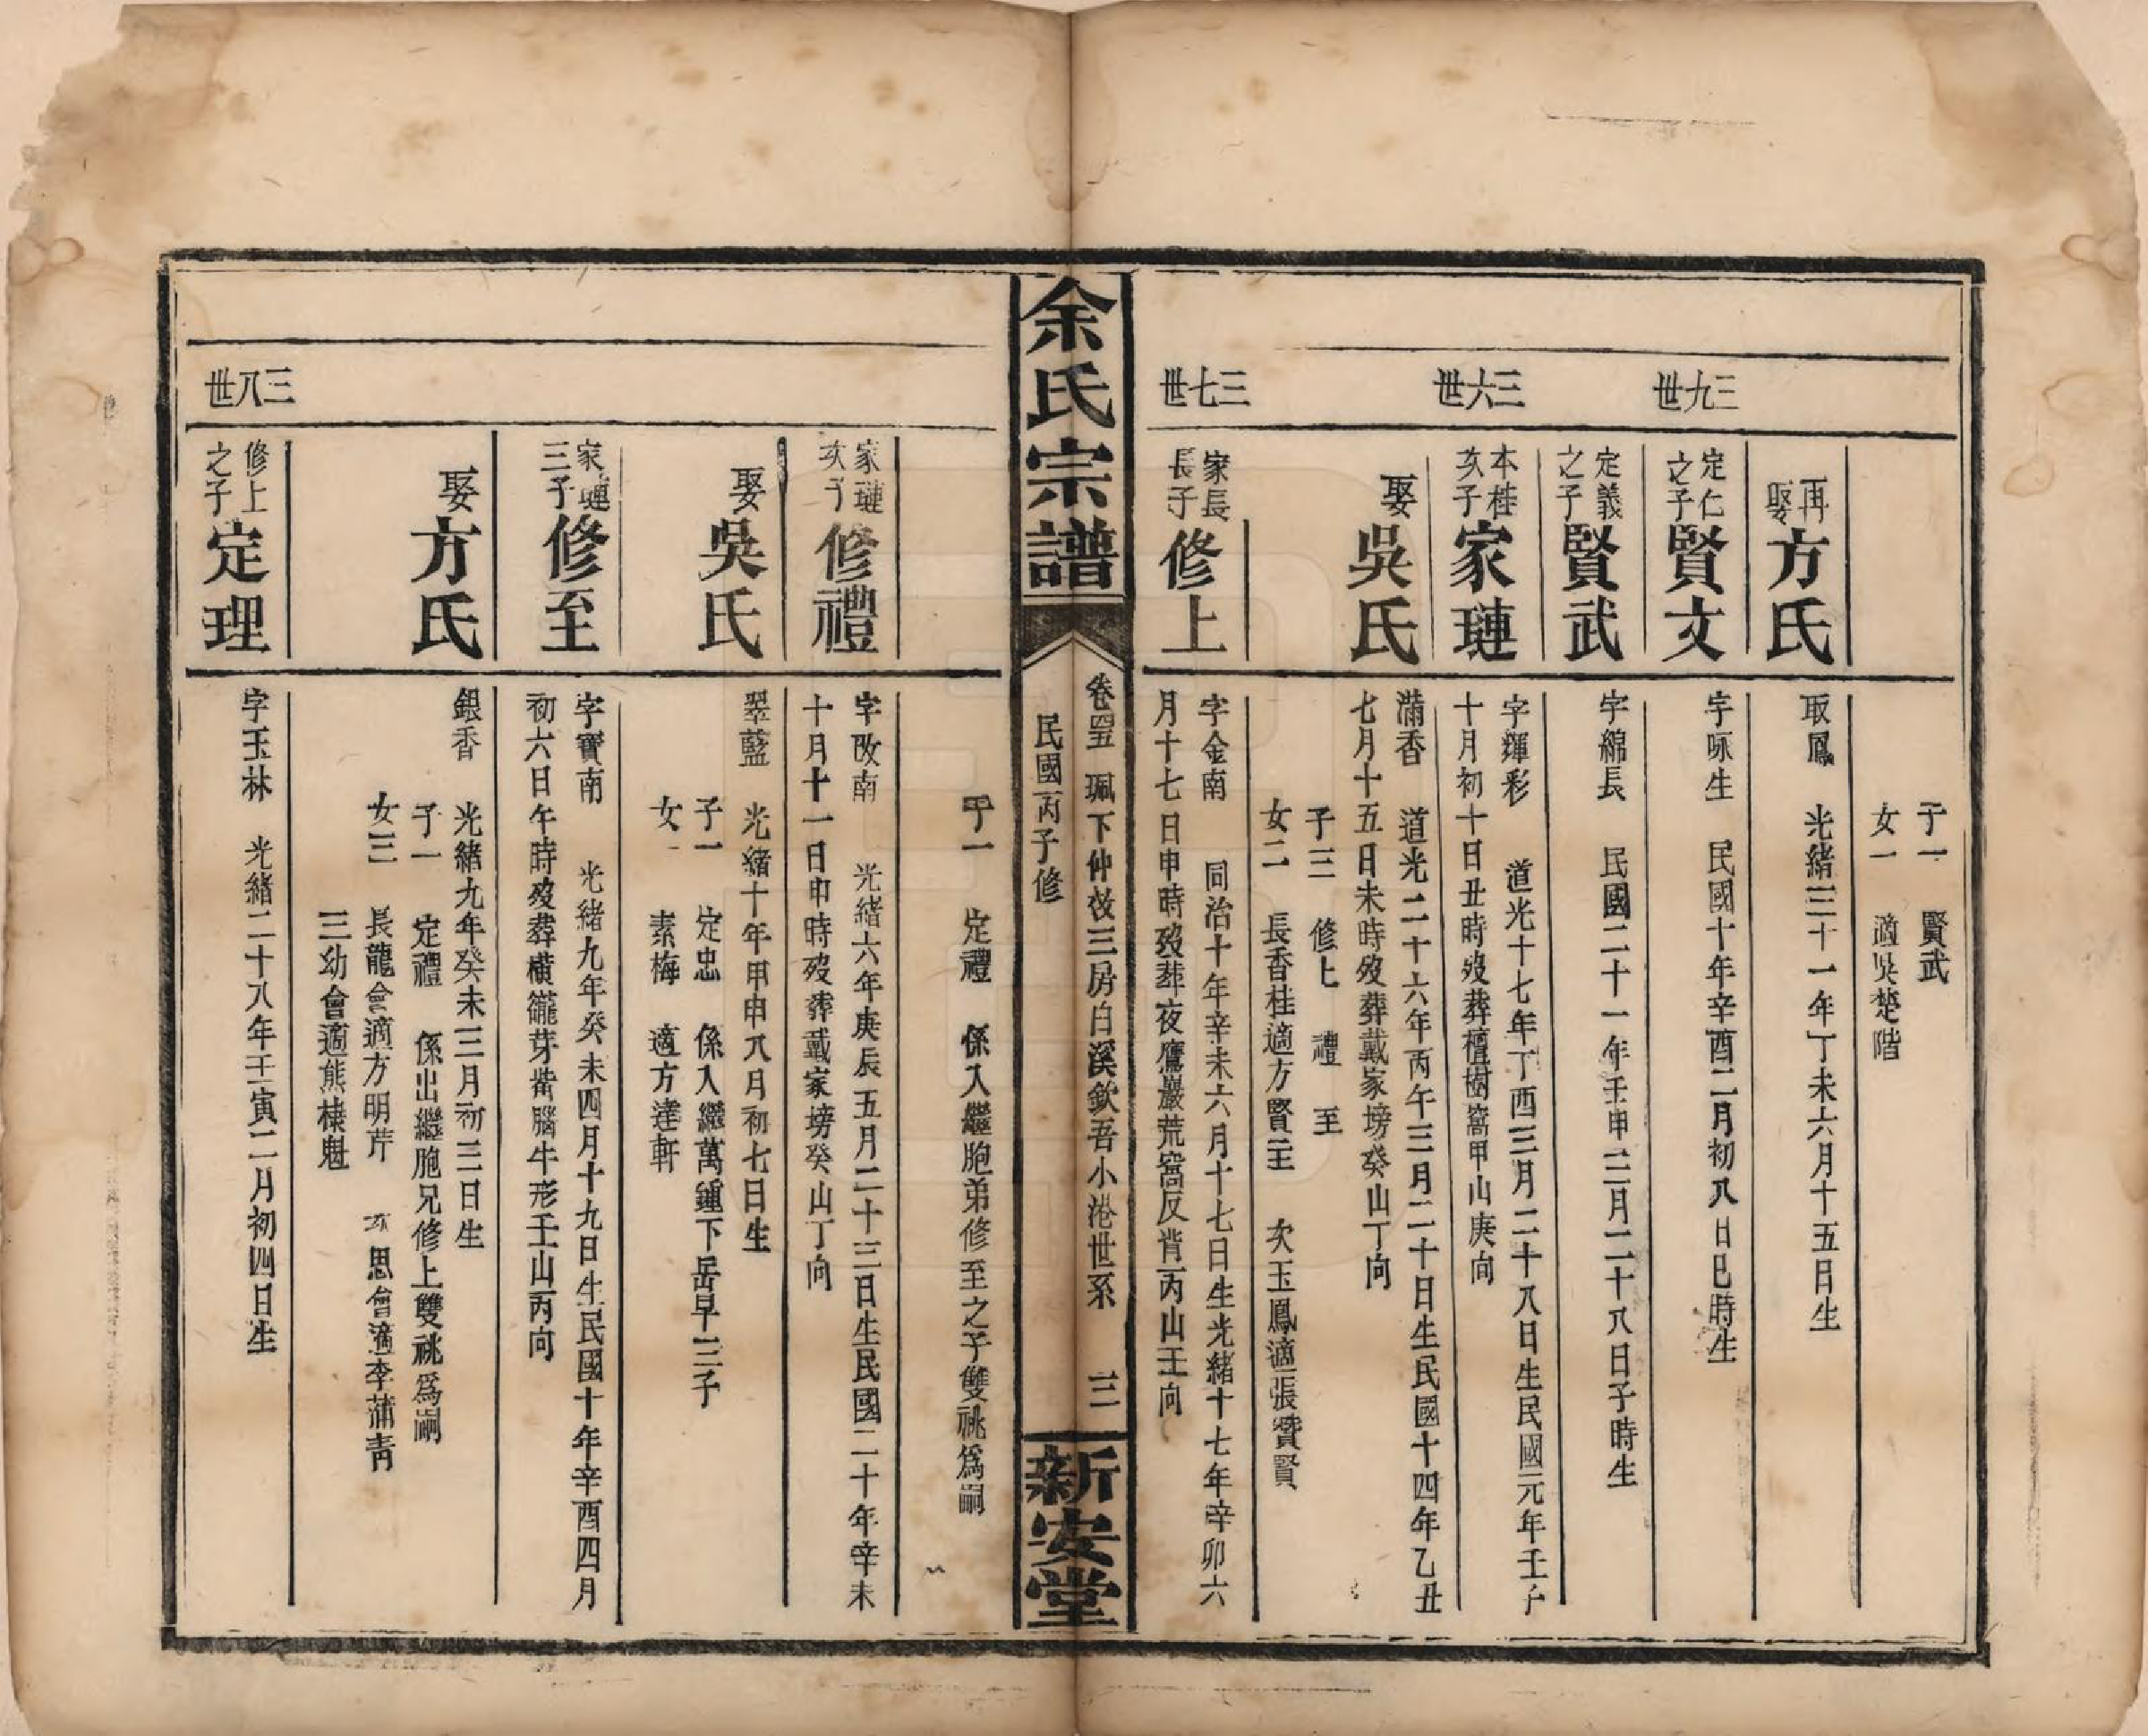 子一　賢武
女一　適吳楚階
再娶方氏
取鳳　光緒三十一年丁未六月十五日生
三九世
定仁之子賢文
字咏生　民國十年辛酉二月初八日巳時生
定義之子賢武
字綿長　民國二十一年壬申三月二十八日子時生
三六世
本桂次子家璉
字輝彩　道光十七年丁酉三月二十八日生民國元年壬子
十月初十日丑時歿葬檀樹窩甲山庚向
娶吳氏
滿香　道光二十六年丙午三月二十日生民國十四年乙丑
七月十五日未時歿葬戴家塝癸山丁向
子三　修上　禮　至
女二　長香桂適方賢主　次玉鳳適張贊賢
三七世
家長長子修上
字金南　同治十年辛未六月十七日生光緒十七年辛卯六
月十七日申時歿葬夜鷹巖荒窩反背丙山壬向
余氏宗譜
卷四五　珮下仲敬三房白溪欽吾小港世系　三
民國丙子修
新安堂
子一　定禮　係入繼胞弟修至之子雙祧爲嗣
家璉次子修禮
字改南　光緒六年庚辰五月二十三日生民國二十年辛未
十月十一日申時歿葬戴家塝癸山丁向
娶吳氏
翠藍　光緒十年甲申八月初七日生
子一　定忠　係入繼萬鍾下岳早三子
女一　素梅　適方達軒
家璉三子修至
字寶南　光緒九年癸未四月十九日生民國十年辛酉四月
初六日午時歿葬橫龍芽凿腦牛形壬山丙向
娶方氏
銀香　光緒九年癸未三月初三日生
子一　定禮　係出繼胞兄修上雙祧爲嗣
女三　長龍會適方明芹　次思會適李蒲青
三幼會適熊榛魁
三八世
修上之子定理
字玉林　光緒二十八年壬寅二月初四日生